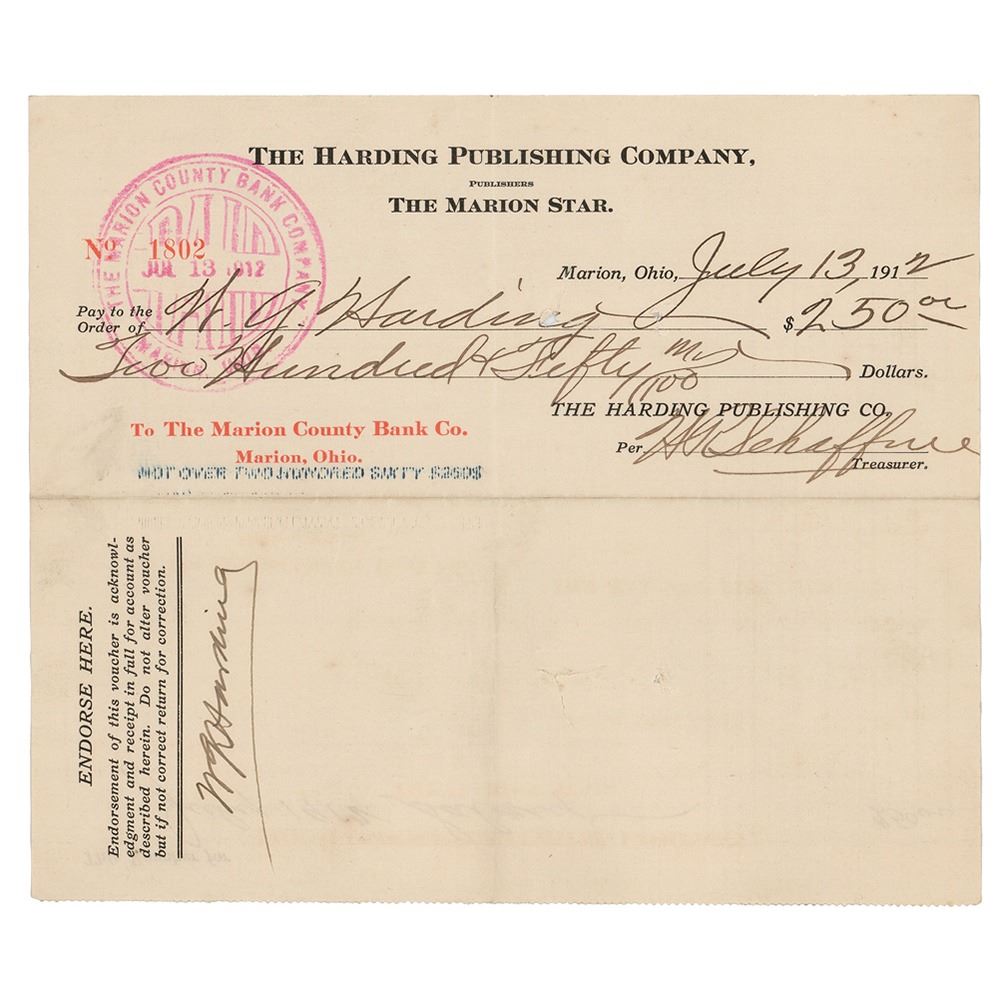 THE HARDING PUBLISHING COMPANY,
PUBLISHERS
THE MARION STAR.
THE MARION COUNTY BANK COMPANY
PAID
JUL 13 1912
MARION, OHIO
No 1802
Marion, Ohio, July 13, 1912
Pay to the Order of W. G. Harding $250 00
Two Hundred & Fifty no/100 Dollars.
THE HARDING PUBLISHING CO.
To The Marion County Bank Co.
Marion, Ohio.
Per H. Schaffner
Treasurer.
NOT OVER TWO HUNDRED FIFTY $250$
ENDORSE HERE.
Endorsement of this voucher is acknowl-
edgment and receipt in full for account as
described herein. Do not alter voucher
but if not correct return for correction.
W G Harding